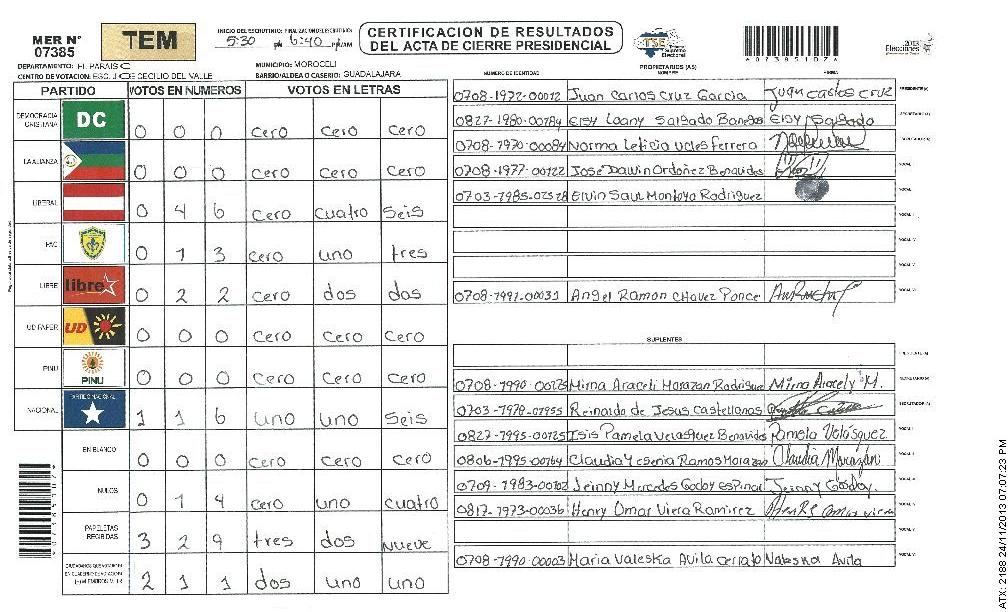 MER N°
07385
TEM
INICIO DEL ESCRUTINIO: FINALIZACION DEL ESCRUTINIO:
5:30 PM 6:40 PM/AM
CERTIFICACION DE RESULTADOS
DEL ACTA DE CIERRE PRESIDENCIAL
TSE
Tribunal Supremo Electoral
2013
Elecciones
*073851076*
DEPARTAMENTO: EL PARAISO
MUNICIPIO: MOROCELI
CENTRO DE VOTACION: ESC. JOSE CECILIO DEL VALLE
BARRIO/ALDEA O CASERIO: GUADALAJARA
NUMERO DE IDENTIDAD
PROPIETARIOS (AS)
NOMBRE
FIRMA
PARTIDO VOTOS EN NUMEROS VOTOS EN LETRAS
DEMOCRACIA CRISTIANA DC 0 0 0 cero cero cero
LA ALIANZA 0 0 0 cero cero cero
LIBERAL 0 4 6 cero cuatro seis
PAC 0 1 3 cero uno tres
LIBRE libre 0 2 2 cero dos dos
UD FAPER UD 0 0 0 cero cero cero
PINU PINU 0 0 0 cero cero cero
NACIONAL PARTIDO NACIONAL 1 1 6 uno uno seis
EN BLANCO 0 0 0 cero cero cero
NULOS 0 1 4 cero uno cuatro
PAPELETAS RECIBIDAS 3 2 9 tres dos nueve
2 1 1 dos uno uno
0708-1972-00012 Juan Carlos Cruz Garcia Juan Carlos Cruz PRESIDENTE(A)
0827-1980-00784 Elsy Loany Salgado Banegas Elsy Salgado SECRETARIO(A)
0708-1970-00084 Norma Leticia Ucles Ferrera
0708-1977-00122 José Dawin Ordoñez Benavides VOCAL
0703-1985-02528 Elvin Saul Montoya Rodriguez VOCAL
VOCAL
VOCAL
VOCAL
0708-1991-00031 Angel Ramon Chavez Ponce VOCAL
SUPLENTES
PRESIDENTE(A)
0708-1990-00225 Mirna Araceli Morazan Rodriguez Mirna Aracely M. SECRETARIO(A)
0703-1978-01955 Reinardo de Jesus Castellanos
0827-1995-00125 Isis Pamela Velasquez Benavides Pamela Velásquez VOCAL
0806-1995-00764 Claudia Yesenia Ramos Morazan Claudia Morazán VOCAL
0709-1983-00102 Jeinny Mercedes Godoy Espinal Jeinny Godoy. VOCAL
0817-1973-00036 Henry Omar Viera Ramirez VOCAL
VOCAL
0708-1990-00003 Maria Valeska Avila Cerrato Valeska Avila VOCAL
ATX: 2188 24/11/2013 07:07:23 PM